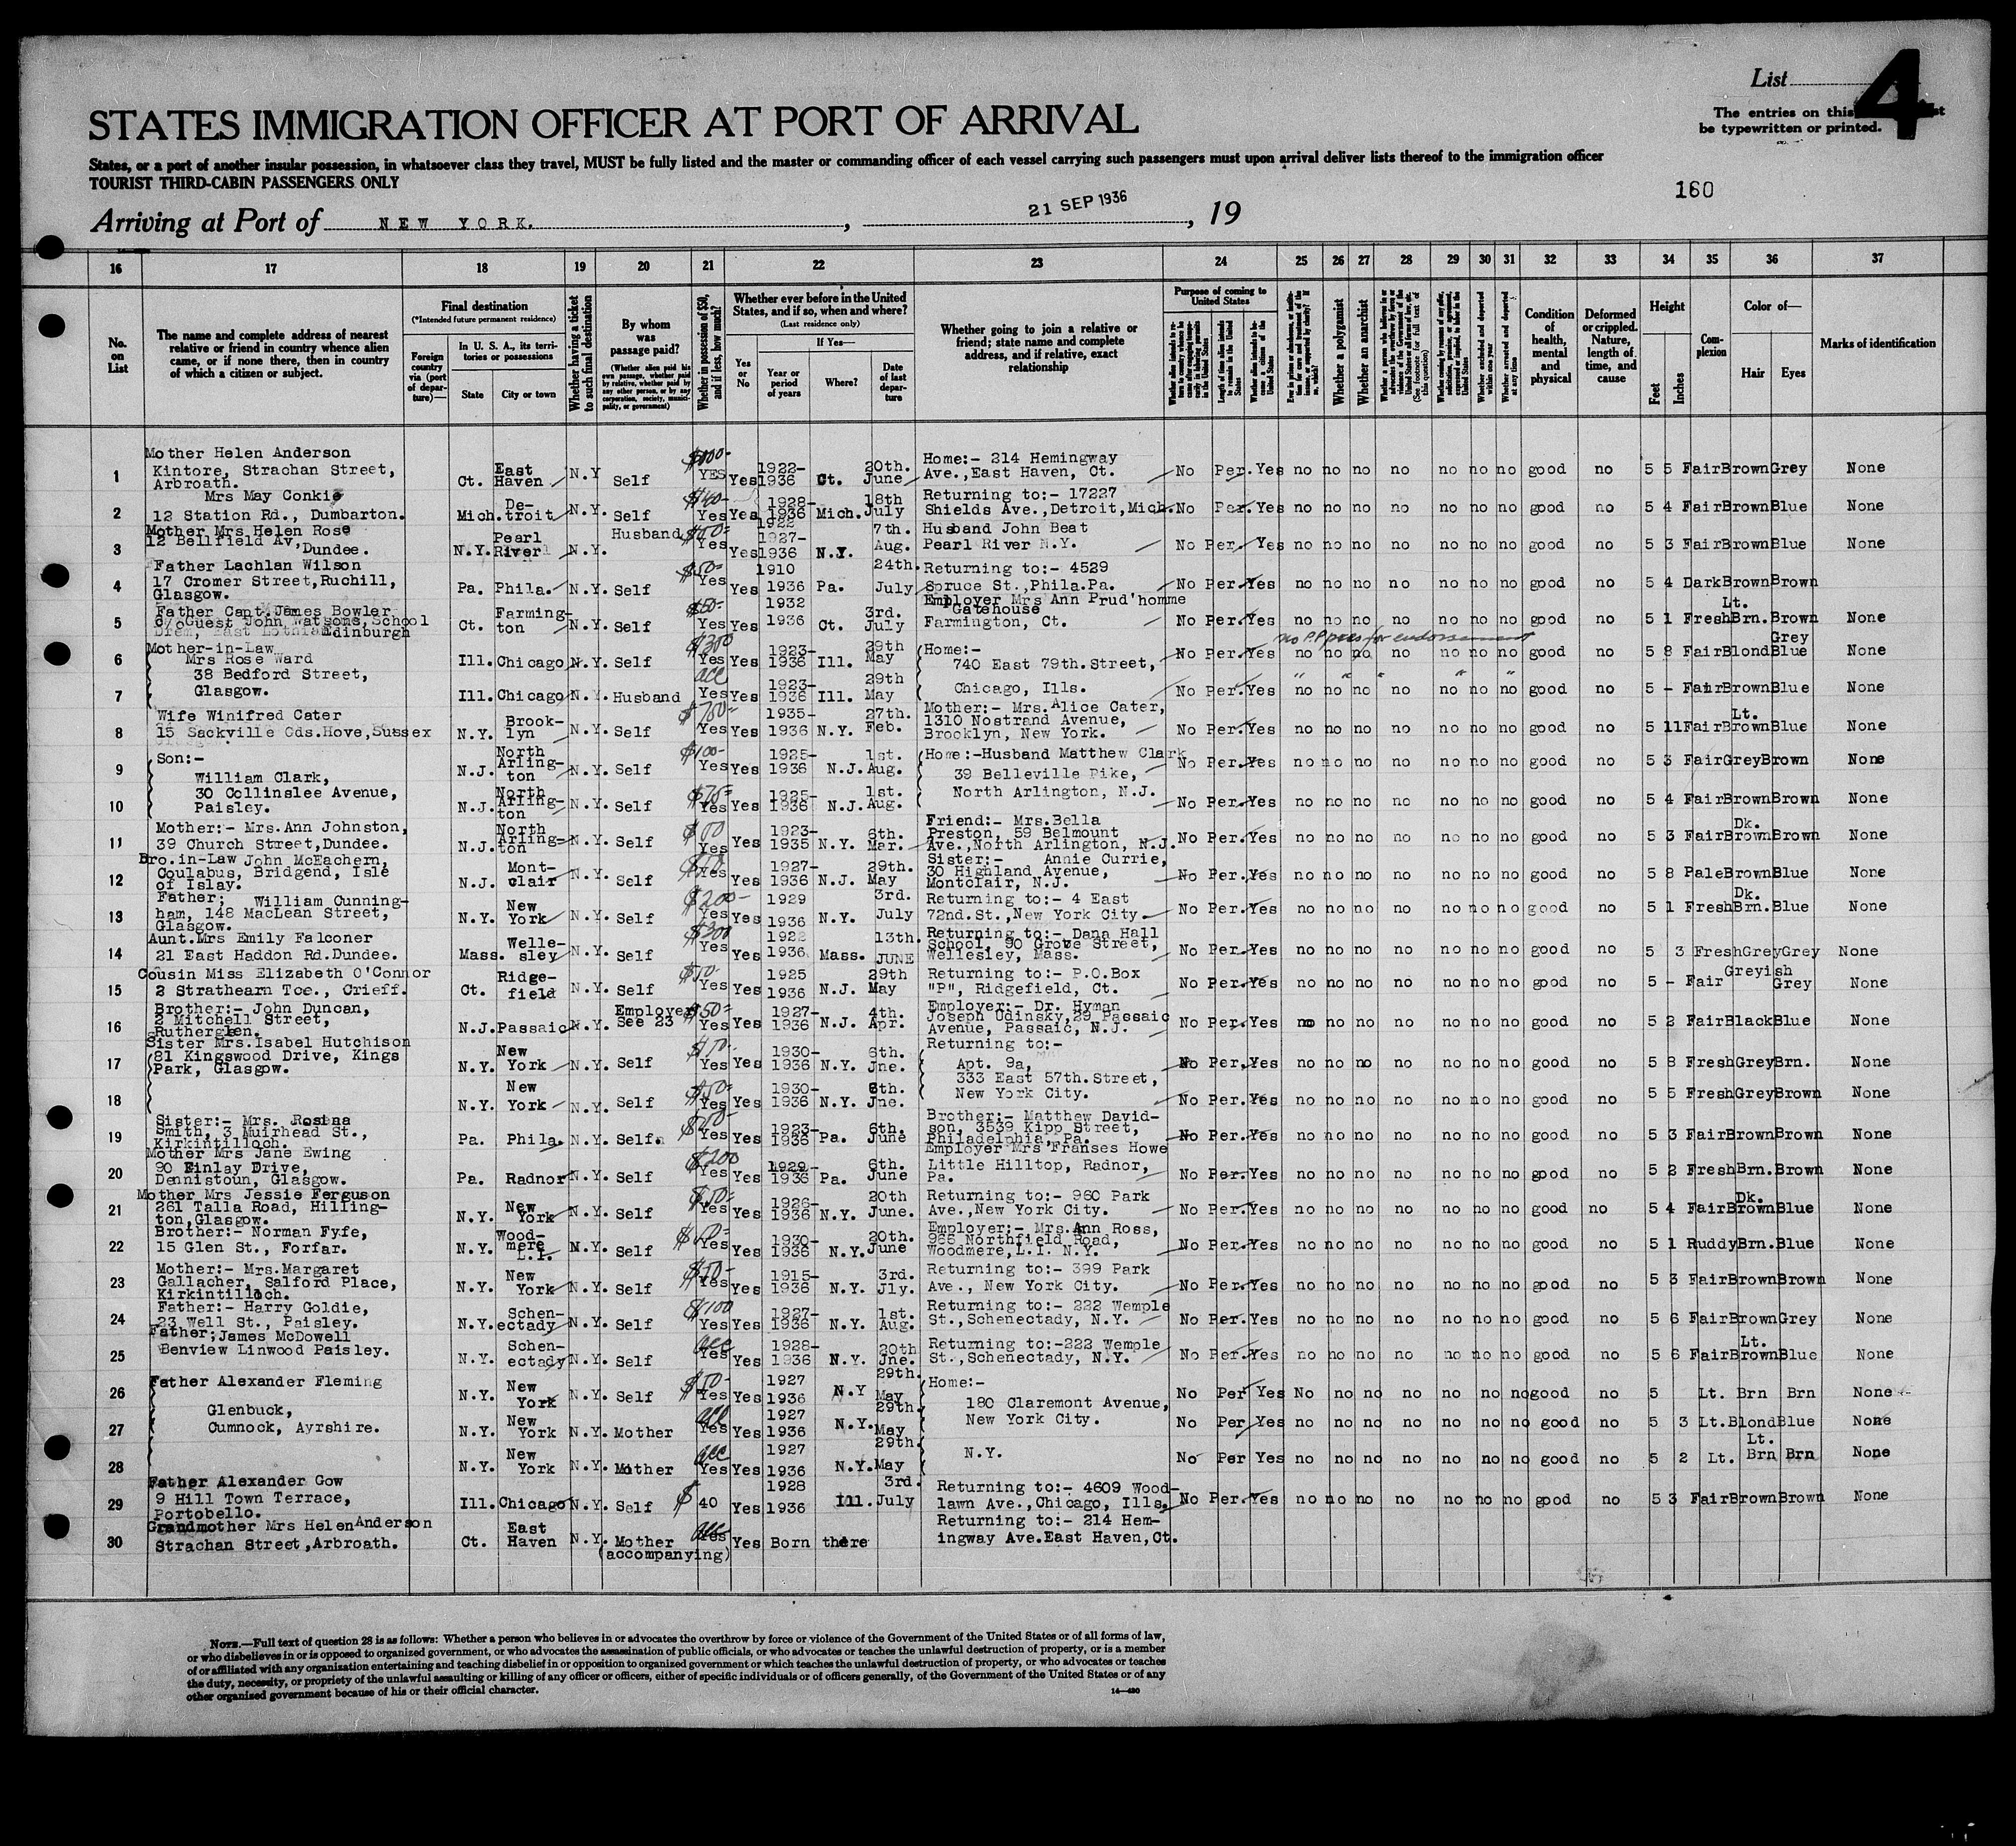 List 4
The entries on this
be typewritten or printed.
STATES IMMIGRATION OFFICER AT PORT OF ARRIVAL
States, or a port of another insular possession, in whatsoever class they travel, MUST be fully listed and the master or commanding officer of each vessel carrying such passengers must upon arrival deliver lists thereof to the immigration officer
TOURIST THIRD-CABIN PASSENGERS ONLY
160
Arriving at Port of NEW YORK. , 21 SEP 1936 , 19
16 17 18 19 20 21 22 23 24 25 26 27 28 29 30 31 32 33 34 35 36 37
No. on List
The name and complete address of nearest relative or friend in country whence alien came, or if none there, then in country of which a citizen or subject.
Final destination
(*Intended future permanent residence)
Foreign country via (port of departure)—
In U. S. A., its territories or possessions
State City or town
Whether having a ticket to such final destination
By whom was passage paid?
(Whether alien paid his own passage, whether paid by relative, whether paid by any other person, or by any corporation, society, municipality, or government)
Whether in possession of $50, and if less, how much?
Whether ever before in the United States, and if so, when and where?
(Last residence only)
Yes or No
If Yes—
Year or period of years
Where?
Date of last departure
Whether going to join a relative or friend; state name and complete address, and if relative, exact relationship
Purpose of coming to United States
Whether a polygamist
Whether an anarchist
Condition of health, mental and physical
Deformed or crippled. Nature, length of time, and cause
Height
Feet Inches
Complexion
Color of—
Hair Eyes
Marks of identification
1 Mother Helen Anderson Kintore, Strachan Street, Arbroath. Ct. East Haven N.Y Self $100- YES Yes 1922-1936 Ct. 20th. June Home:- 214 Hemingway Ave.,East Haven, Ct. No Per. Yes no no no no no no no good no 5 5 Fair Brown Grey None
2 Mrs May Conkie 12 Station Rd., Dumbarton. Mich. De-troit N.Y. Self $40- Yes Yes 1928-1936 Mich. 18th July Returning to:- 17227 Shields Ave.,Detroit,Mich. No Per. Yes no no no no no no no good no 5 4 Fair Brown Blue None
3 Mother Mrs Helen Rose 12 Bellfield Av, Dundee. N.Y. Pearl River N.Y. Husband Yes Yes 1922 1927-1936 N.Y. 7th. Aug. Husband John Beat Pearl River N.Y. No Per. Yes no no no no no no no good no 5 3 Fair Brown Blue None
4 Father Lachlan Wilson 17 Cromer Street,Ruchill, Glasgow. Pa. Phila. N.Y. Self $50- Yes Yes 1910 1936 Pa. 24th. July Returning to:- 4529 Spruce St.,Phila.Pa. No Per. Yes no no no no no no no good no 5 4 Dark Brown Brown
5 Father Capt.James Bowler c/o Guest John Watsons,School Edinburgh Ct. Farming-ton N.Y. Self $50- Yes Yes 1932 1936 Ct. 3rd. July Employer Mrs Ann Prud'homme Gatehouse Farmington, Ct. No Per. Yes no no no no no no no good no 5 1 Fresh Lt. Brn. Brown None
6 Mother-in-Law Mrs Rose Ward 38 Bedford Street, Glasgow. Ill. Chicago N.Y. Self $300 Yes Yes 1923-1936 Ill. 29th May Home:- 740 East 79th.Street, Chicago, Ills. No Per. Yes no no no no no no no good no 5 8 Fair Blond Grey Blue None
7 Ill. Chicago N.Y. Husband acc Yes Yes 1923-1936 Ill. 29th May No Per. Yes no no no no no no no good no 5 - Fair Brown Blue None
8 Wife Winifred Cater 15 Sackville Gds.Hove,Sussex N.Y. Brook-lyn N.Y. Self Yes Yes 1935-1936 N.Y. 27th. Feb. Mother:- Mrs.Alice Cater, 1310 Nostrand Avenue, Brooklyn, New York. No Per. Yes no no no no no no no good no 5 11 Fair Lt. Brown Blue None
9 Son:- William Clark, 30 Collinslee Avenue, Paisley. N.J. North Arling-ton N.Y. Self $100- Yes Yes 1925-1936 N.J. 1st. Aug. Home:-Husband Matthew Clark 39 Belleville Pike, North Arlington, N.J. No Per. Yes no no no no no no no good no 5 3 Fair Grey Brown None
10 N.J. North Arling-ton N.Y. Self $75- Yes Yes 1925-1936 N.J. 1st. Aug. No Per. Yes no no no no no no no good no 5 4 Fair Brown Brown None
11 Mother:- Mrs.Ann Johnston, 39 Church Street,Dundee. N.J. North Arling-ton N.Y. Self Yes Yes 1923-1935 N.Y. 6th. Mar. Friend:- Mrs.Bella Preston, 59 Belmount Ave.,North Arlington, N.J. No Per. Yes no no no no no no no good no 5 3 Fair Dk. Brown Brown None
12 Bro.in-Law John McEachern, Coulabus, Bridgend, Isle of Islay. N.J. Mont-clair N.Y. Self Yes Yes 1927-1936 N.J. 29th. May Sister:- Annie Currie, 30 Highland Avenue, Montclair, N.J. No Per. Yes no no no no no no no good no 5 8 Pale Brown Blue None
13 Father; William Cunning-ham, 148 MacLean Street, Glasgow. N.Y. New York N.Y. Self $200- Yes Yes 1929 1936 N.Y. 3rd. July Returning to:- 4 East 72nd.St.,New York City. No Per. Yes no no no no no no no good no 5 1 Fresh Dk. Brn. Blue None
14 Aunt.Mrs Emily Falconer 21 East Haddon Rd.Dundee. Mass. Welle-sley N.Y. Self $300 Yes Yes 1922 1936 Mass. 13th. JUNE Returning to:- Dana Hall School, 90 Grove Street, Wellesley, Mass. No Per. Yes no no no no no no no good no 5 3 Fresh Grey Grey None
15 Cousin Miss Elizabeth O'Connor 2 Strathearn Tce., Crieff. Ct. Ridge-field N.Y. Self Yes Yes 1925 1936 N.J. 29th May Returning to:- P.O.Box "P", Ridgefield, Ct. No Per. Yes no no no no no no no good no 5 - Fair Greyish Grey None
16 Brother:- John Duncan, 2 Mitchell Street, Rutherglen. N.J. Passaic N.Y. Employer See 23 $50- Yes Yes 1927-1936 N.J. 4th. Apr. Employer:- Dr. Hyman Joseph Udinsky,29 Passaic Avenue, Passaic, N.J. No Per. Yes no no no no no no no good no 5 2 Fair Black Blue None
17 Sister Mrs.Isabel Hutchison 81 Kingswood Drive, Kings Park, Glasgow. N.Y. New York N.Y. Self Yes Yes 1930-1936 N.Y. 6th. Jne. Returning to:- Apt. 9a, 333 East 57th.Street, New York City. No Per. Yes no no no no no no no good no 5 8 Fresh Grey Brn. None
18 N.Y. New York N.Y. Self $50- Yes Yes 1930-1936 N.Y. 6th. Jne. No Per. Yes no no no no no no no good no 5 5 Fresh Grey Brown None
19 Sister:- Mrs. Rosina Smith, 3 Muirhead St., Kirkintilloch. Pa. Phila. N.Y. Self. Yes Yes 1923-1936 Pa. 6th. June Brother:- Matthew David-son, 3539 Kipp Street, Philadelphia, Pa. No Per. Yes no no no no no no no good no 5 3 Fair Brown Brown None
20 Mother Mrs Jane Ewing 90 Finlay Drive, Dennistoun, Glasgow. Pa. Radnor N.Y. Self $200 Yes Yes 1929-1936 Pa. 6th. June Employer Mrs Franses Howe Little Hilltop, Radnor, Pa. No Per. Yes no no no no no no no good no 5 2 Fresh Brn. Brown None
21 Mother Mrs Jessie Ferguson 261 Talla Road, Hilling-ton,Glasgow. N.Y. New York N.Y. Self $50- Yes Yes 1926-1936 N.Y. 20th June. Returning to:- 960 Park Ave.,New York City. No Per. Yes no no no no no no no good no 5 4 Fair Dk. Brown Blue None
22 Brother:- Norman Fyfe, 15 Glen St., Forfar. N.Y. Wood-mere L.I. N.Y. Self Yes Yes 1930-1936 N.Y. 20th. June Employer:- Mrs.Ann Ross, 966 Northfield Road, Woodmere,L.I. N.Y. No Per. Yes no no no no no no no good no 5 1 Ruddy Brn. Blue None
23 Mother:- Mrs.Margaret Gallacher, Salford Place, Kirkintilloch. N.Y. New York N.Y. Self $50- Yes Yes 1915-1936 N.Y. 3rd. Jly. Returning to:- 399 Park Ave., New York City. No Per. Yes no no no no no no no good no 5 3 Fair Brown Brown None
24 Father:- Harry Goldie, 23 Well St., Paisley. N.Y. Schen-ectady N.Y. Self $100 Yes Yes 1927-1936 N.Y. 1st. Aug. Returning to:- 222 Wemple St.,Schenectady, N.Y. No Per. Yes no no no no no no no good no 5 6 Fair Brown Grey None
25 Father;James McDowell Benview Linwood Paisley. N.Y. Schen-ectady N.Y. Self acc Yes Yes 1928-1936 N.Y. 20th Jne. Returning to:-222 Wemple St.,Schenectady, N.Y. No Per. Yes no no no no no no no good no 5 6 Fair Lt. Brown Blue None
26 Father Alexander Fleming Glenbuck, Cumnock, Ayrshire. N.Y. New York N.Y. Self $50- Yes Yes 1927 1936 N.Y 29th. May Home:- 180 Claremont Avenue, New York City. N.Y. No Per Yes No no no no no no no good no 5 Lt. Brn Brn None
27 N.Y. New York N.Y. Mother acc Yes Yes 1927 1936 N.Y. 29th. May No Per Yes no no no no no no no good no 5 3 Lt. Blond Blue None
28 N.Y. New York N.Y. Mother acc Yes Yes 1927 1936 N.Y. 29th. May No Per Yes no no no no no no no good no 5 2 Lt. Lt. Brn Brn None
29 Father Alexander Gow 9 Hill Town Terrace, Portobello. Ill. Chicago N.Y. Self $ 40 Yes 1928 1936 Ill. 3rd. July Returning to:- 4609 Wood-lawn Ave.,Chicago, Ills. No Per. Yes no no no no no no no good no 5 3 Fair Brown Brown None
30 Grandmother Mrs Helen Anderson Strachan Street,Arbroath. Ct. East Haven N.Y. Mother (accompanying) acc Yes Yes Born there Returning to:- 214 Hem-ingway Ave.East Haven,Ct.
NOTE.—Full text of question 28 is as follows: Whether a person who believes in or advocates the overthrow by force or violence of the Government of the United States or of all forms of law,
or who disbelieves in or is opposed to organized government, or who advocates the assassination of public officials, or who advocates or teaches the unlawful destruction of property, or is a member
of or affiliated with any organization entertaining and teaching disbelief in or opposition to organized government or which teaches the unlawful destruction of property, or who advocates or teaches
the duty, necessity, or propriety of the unlawful assaulting or killing of any officer or officers, either of specific individuals or of officers generally, of the Government of the United States or of any
other organized government because of his or their official character.